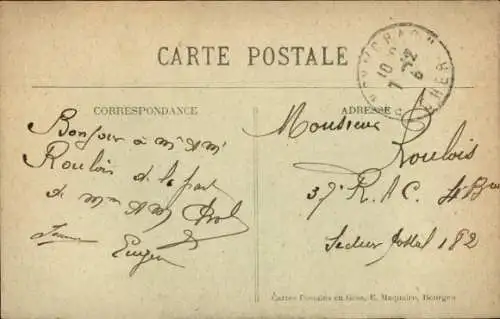 CARTE POSTALE
CORRESPONDANCE
Bonjour à Mr & Me
Roulois de la part
de Mme & Mr
Eugen
ADRESSE
Monsieur
Roulois
37e R.A.C. 4e
Secteur postal 182
Cartes Postales en Gros, E. Maquaire, Bourges
CHER